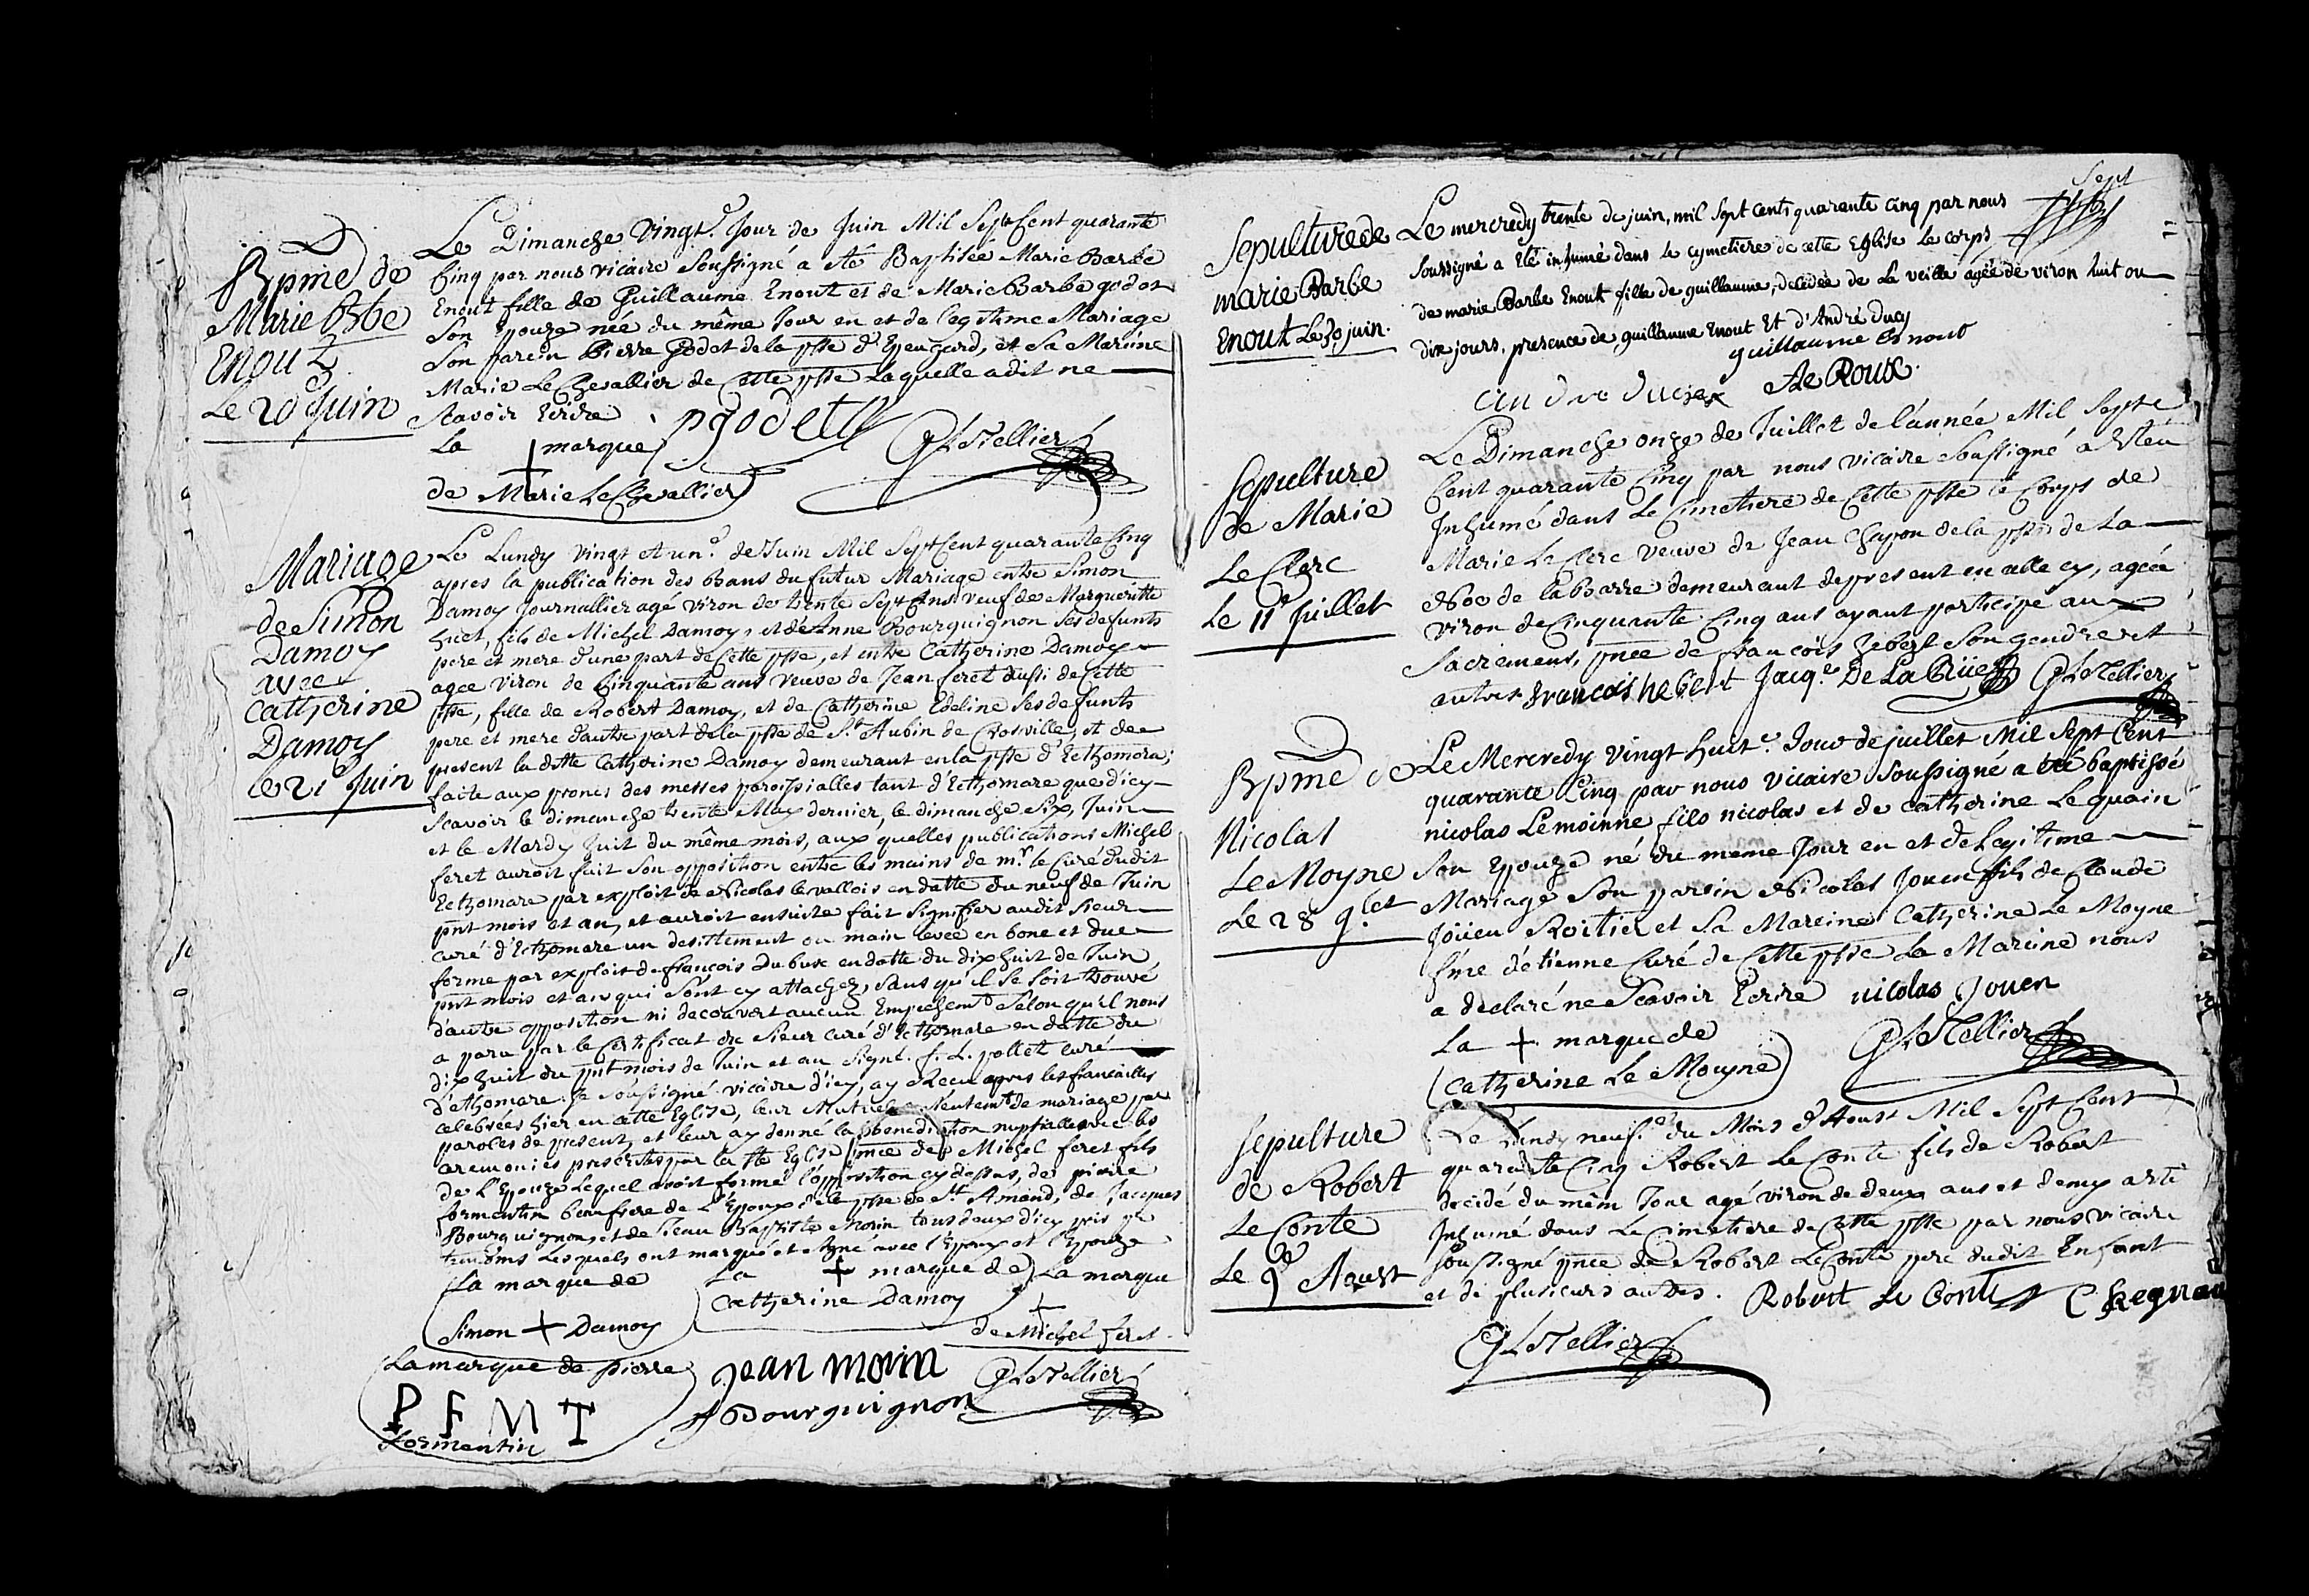 Bpme de
Marie Bbe
Enout
Le 20 Juin
Le Dimanche Vingt.e Jour de Juin Mil Sept Cent quarante
Cinq par nous vicaire Soussigné a été Baptisée Marie Barbe
Enout fille de Guillaume Enout et de Marie Barbe godet
Son Epouze née du même Jour en et de legitime Mariage
Son parein Pierre Godet de la psse d'Epeugard, et Sa Mareine
Marie Le Chevallier de Cette psse Laquelle a dit ne
Scavoir Ecrire
pgodet
La + marque
de Marie Le Chevallier
G Le Tellier
Mariage
de Simon
Damoy
avec
Catherine
Damoy
le 21 Juin
Le Lundy Vingt et un.e de Juin Mil Sept Cent quarante Cinq
apres la publication des Bans du futur Mariage entre Simon
Damoy Journallier agé viron de trente Sept Ans veuf de Margueritte
huet, fils de Michel Damoy, et d'Anne Bourguignon Ses defunts
pere et mere d'une part de Cette psse, et entre Catherine Damoy
agee viron de Cinquante ans veuve de Jean feret aussi de Cette
psse, fille de Robert Damoy, et de Catherine Edeline Ses defunts
pere et mere d'autre part de la psse de St Aubin de Crosville, et de
present la ditte Catherine Damoy demeurant en la psse d'Ecthomare;
faite aux prones des messes paroissialles tant d'Ecthomare que d'icy
Scavoir le dimanche trente May dernier, le dimanche Six, Juin
et le Mardy huit du même mois, aux quelles publications Michel
feret auroit fait Son opposition entre les mains de mr. le Curé dudit
Ecthomare par exploit de Nicolas levallois en datte du neuf de Juin
pnt mois et an, et auroit ensuite fait Signifier audit Sieur
curé d'Ecthomare un desistement ou main levée en bone et due
forme par exploit de françois Dubusc en datte du dix huit de Juin
pnt mois et an qui Sont cy attachez, Sans qu'il Se Soit trouvé
d'autre opposition ni decouvert aucun Empechemt Selon qu'il nous
a paru par le Certificat du Sieur Curé d'Ecthomare en datte du
dix huit du pnt mois de Juin et an Signé. f. L. pollet curé
d'Ethomare. Je Soussigné vicaire d'icy, ay Receu apres les fiancailles
celebrées hier en cette Eglise, leur Mutuel Consentemt de mariage par
paroles de present, et leur ay donné la benediction nuptialle avec les
ceremonies prescrites par la Ste Eglise pnce de Michel feret fils
de L'Epouze Lequel avoit formé l'opposition cy dessus, de pierre
formentin beaufrere de L'Epoux de la psse de St Amand, de Jacques
Bourguignon, et de Jean Baptiste Morin tous deux d'icy pris pr
temoins Lesquels ont marqué et Signé avec l'Epoux et l'Epouze
La marque de
Simon + Damoy
La + marque de
Catherine Damoy
La marque
+
de Michel feret
La marque de pierre
P F M T
formentin
jean morin
J Bourguignon
G Le Tellier
Sept
Sepulture de
marie Barbe
Enout Le 30 juin.
Le mercredy trente de juin, mil Sept cents quarante cinq par nous
Soussigné a Eté inhumé dans le cymetiere de cette Eglise le corps
de marie Barbe Enout fille de guillaume, decedée de La veille agée de viron huit ou
dix jours, presence de guillaume Enout Et d'André ducy
guillaume Esnout
andre ducy
Le Roux.
Sepulture
de Marie
Le Clerc
Le 11e Juillet
Le Dimanche onze de Juillet de l'année Mil Sept
Cent quarante Cinq par nous vicaire Soussigné a Eté
Inhumé dans Le Cimetiere de Cette psse Le Corps de
Marie Le Clerc veuve de Jean Chapon de la psse de La
Noe de la Barre demeurant de present en celle cy, agée
viron de Cinquante Cinq ans ayant participé au
Sacremens, pnce de francois hebert Son gendre et
autres francois hebert Jacq.e De La Rüe G Le Tellier
Bpme de
Nicolas
Le Moyne
Le 28 Jlet
Le Mercredy vingt huit.e Jour de juillet Mil Sept Cent
quarante Cinq par nous vicaire Soussigné a eté baptissé
nicolas Lemoinne fils nicolas et de catherine Le quain
Son Epouze né du meme Jour en et de Legitime
Mariage Son parein Nicolas Jouen fils de Claude
Joüen Roitier et Sa Mareine Catherine Le Moyne
fme d'étienne Curé de Cette psse La Mareine nous
a declaré ne Scavoir Ecrire nicolas Jouen
La + marque de
Catherine Le Moyne
G Le Tellier
Sepulture
de Robert
Le Conte
Le 9e Aoust
Le Lundy neuf.e du Mois d'Aoust Mil Sept Cent
quarante Cinq Robert Le Conte fils de Robert
decidé du mêm Jour agé viron de deux ans et demy a eté
Inhumé dans Le Cimetiere de Cette psse par nous vicaire
Soussigné pnce de Robert Le Conte pere dudit Enfant
et de plusieurs autres. Robert Le Conte
G Le Tellier